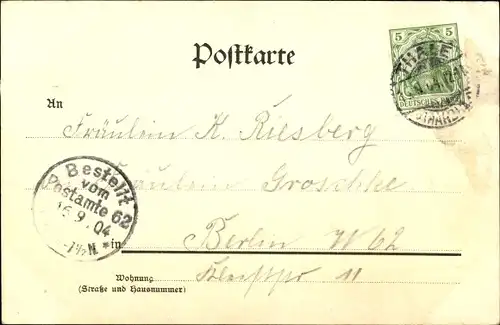 Postkarte
5
DEUTSCHES
THALE
(HARZ)
An
Fräulein K. Riesberg
Fräulein Groschke
Bestellt
vom
Postamte 62
15.9.04
in Berlin W 62
Kleiststr 11
Wohnung
(Straße und Hausnummer)